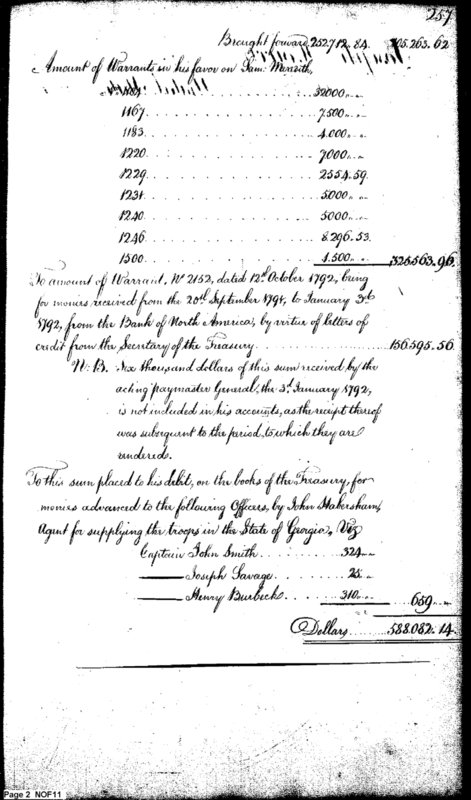 257
Brought forward, 252.712.84. 105.263.62
Amount of Warrants in his favor on Sam. Meredith,
32000
1167 7.500
1183 4.000
1220 7000
1229 2554.59
1231 5.000
1240 5000
1246 8.296.53
1500 1.500 325.563.96
To amount of Warrant, No 2152, dated 12th October 1792, being
for monies received from the 20th September 1791, to January 3rd
1792, from the Bank of North America, by virtue of letters of
credit from the Secretary of the Treasury 156.595.56
N.B. Six thousand dollars of this sum received by the
acting paymaster General, the 3d January 1792,
is not included in his accounts, as the receipt thereof
was subsequent to the period, to which they are
rendered.
To this sum placed to his debit, on the books of the Treasury, for
monies advanced to the following Officers, by John Habersham,
Agent for supplying the troops in the State of Georgia, Viz
Captain John Smith 324
Joseph Savage 25
Henry Burbeck 310 659
Dollars 588.082.14
Page 2 NOF11